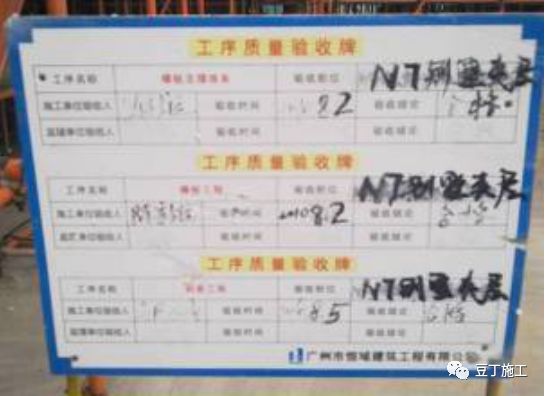 工序质量验收牌
工序名称 模板支撑体系 验收部位 N7别墅夹层
施工单位验收人 验收时间 验收结论 合格
监理单位验收人 验收时间 验收结论
工序质量验收牌
工序名称 模板工程 验收部位 N7别墅夹层
施工单位验收人 验收时间 8.2 验收结论 合格
监理单位验收人 验收时间 验收结论
工序质量验收牌
工序名称 验收部位 N7别墅夹层
施工单位验收人 验收时间 8.5 验收结论 合格
监理单位验收人 验收时间 验收结论
广州市恒域建筑工程有限公司
豆丁施工